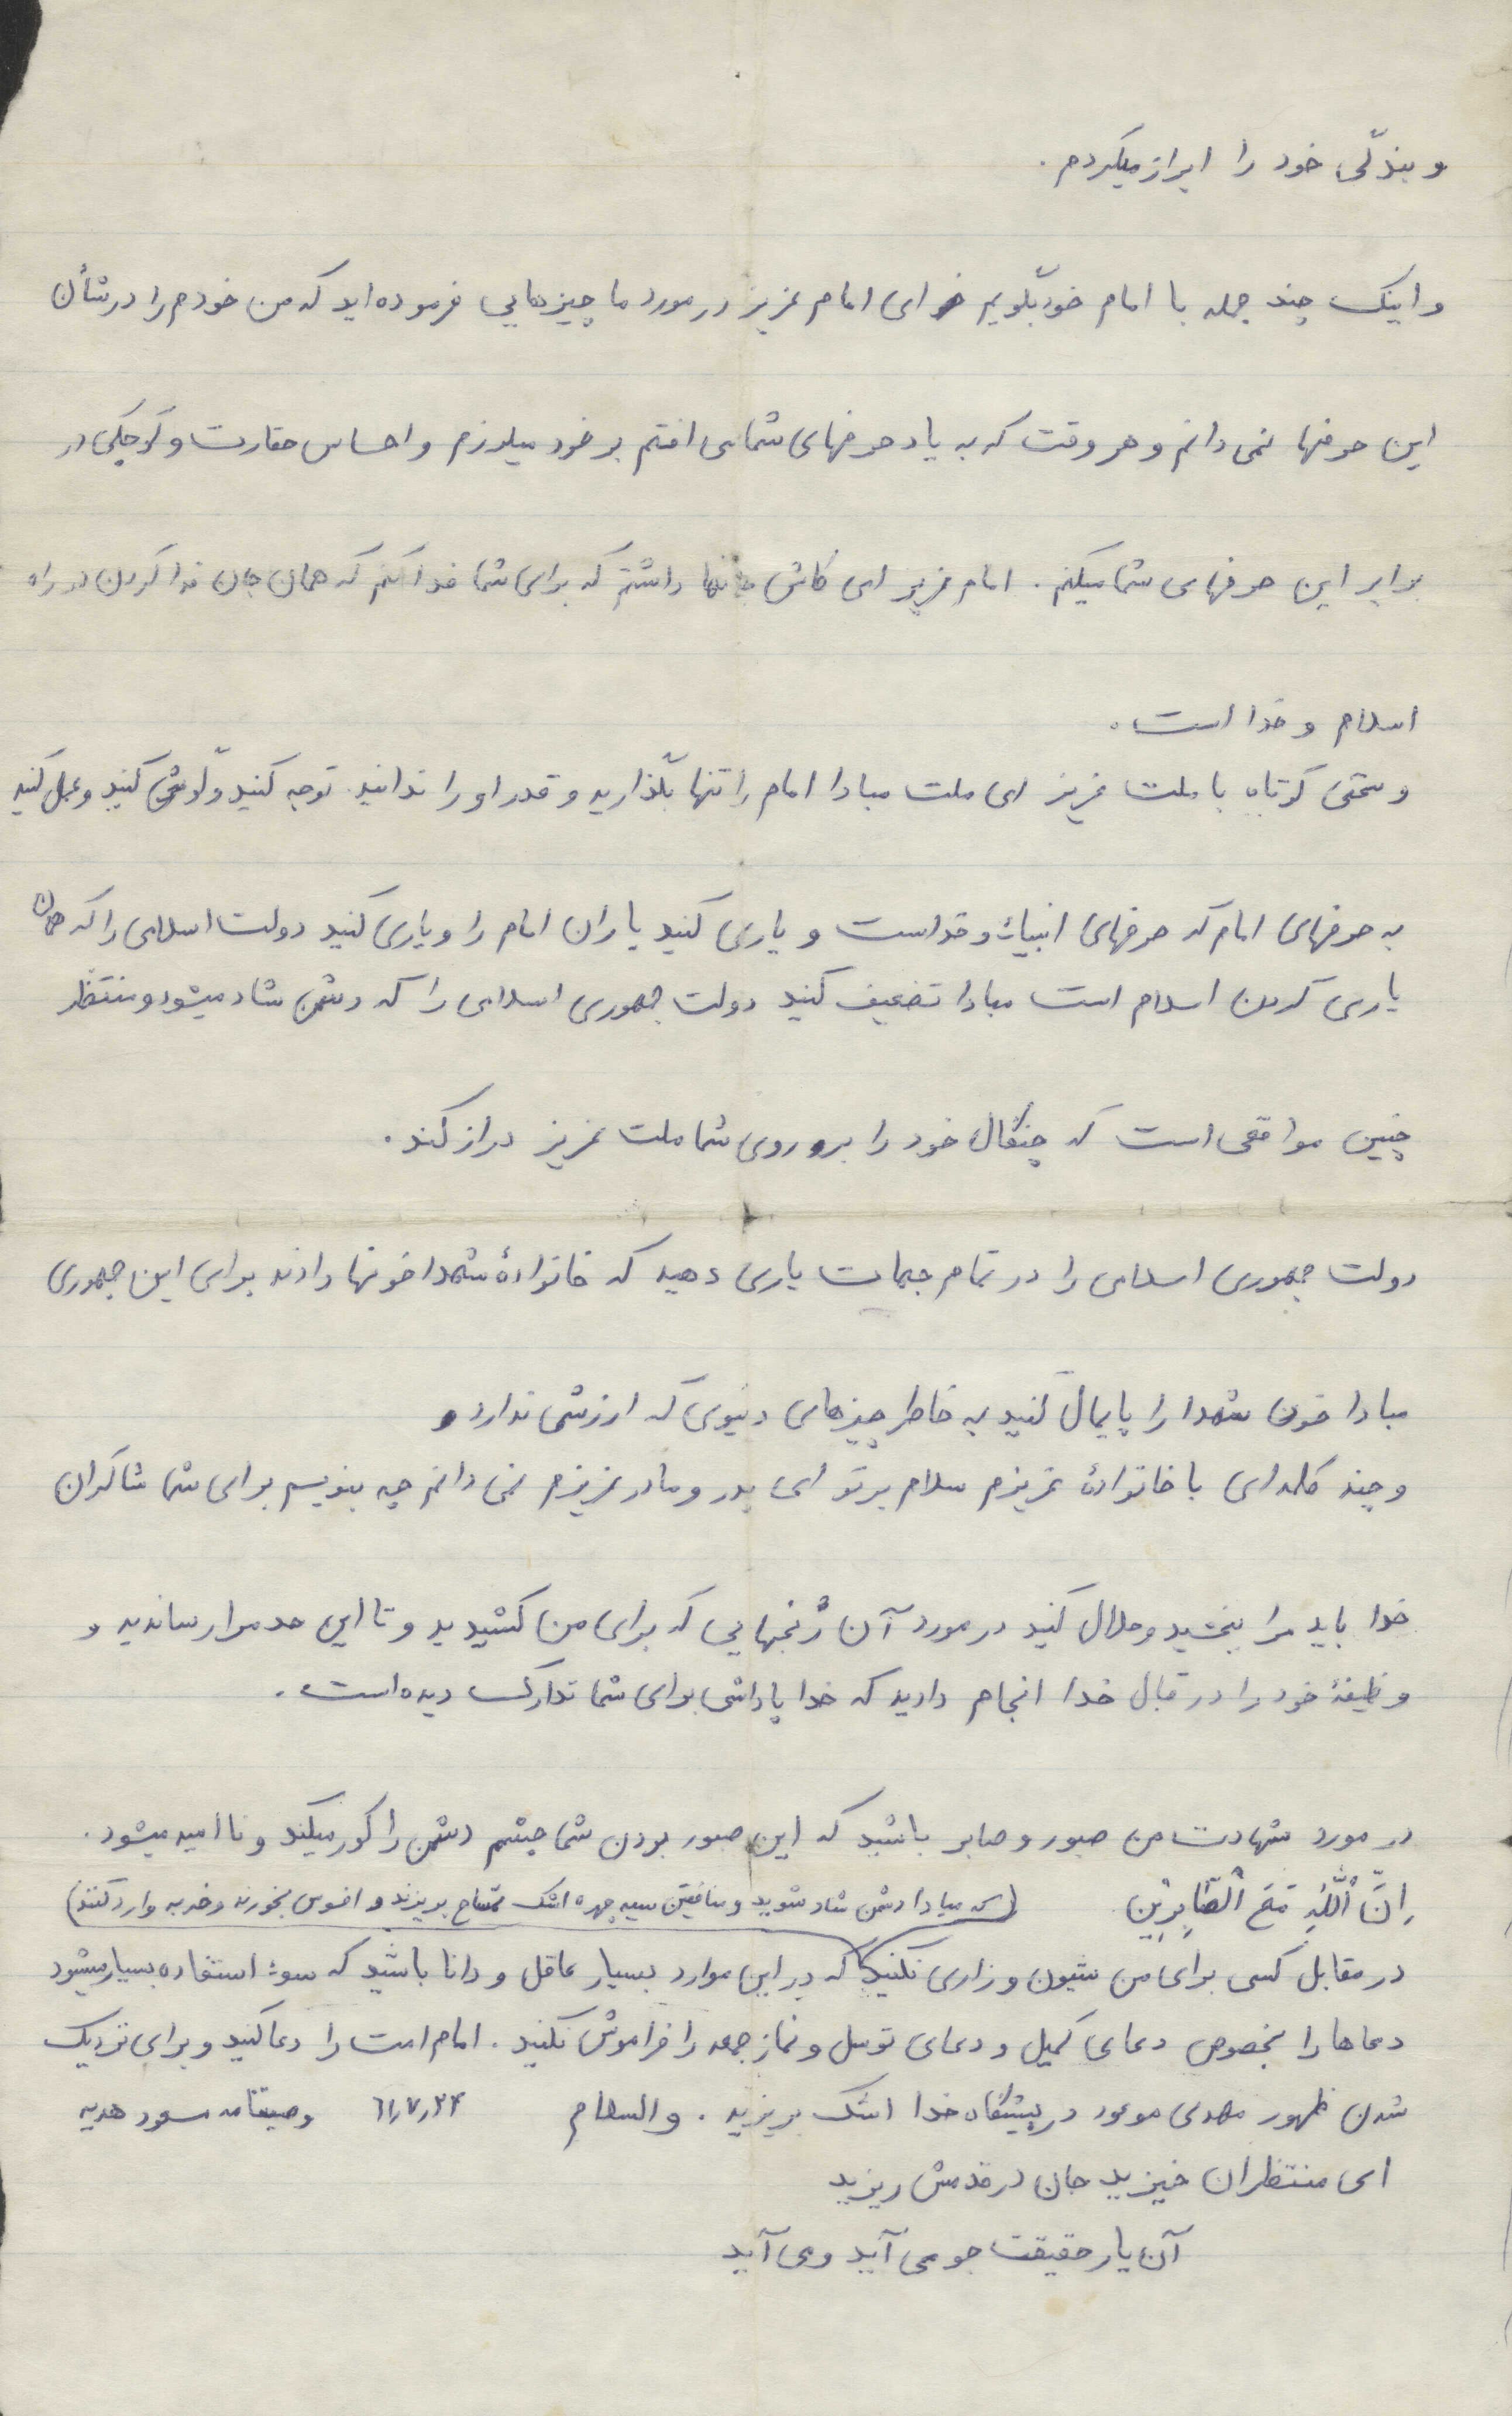 و بندگی خود را ابراز میکردم .
و اینک چند جمله با امام خود بگویم ای امام عزیز در مورد ما چیزهایی فرموده اید که من خودم را در شأن
این حرفها نمی دانم و هر وقت که به یاد حرفهای شما می افتم بر خود میلرزم و احساس حقارت و کوچکی در
برابر این حرفهای شما میکنم . امام عزیز ای کاش جانها داشتم که برای شما فدا کنم که همان جان فدا کردن در راه
اسلام و خدا است .
و سخنی کوتاه با ملت عزیز ای ملت مبادا امام را تنها بگذارید و قدر او را ندانید . توجه کنید و گوش کنید و عمل کنید
به حرفهای امام که حرفهای انبیاء و خداست و یاری کنید یاران امام را و یاری کنید دولت اسلامی را که همان
یاری کردن اسلام است مبادا تضعیف کنید دولت جمهوری اسلامی را که دشمن شاد میشود و منتظر
چنین مواقعی است که چنگال خود را بر روی شما ملت عزیز دراز کند .
دولت جمهوری اسلامی را در تمام جهات یاری دهید که خانوادهٔ شهدا خونها دادند برای این جمهوری
مبادا خون شهدا را پایمال کنید به خاطر چیزهای دنیوی که ارزشی ندارد و
و چند کلمه ای با خانوادهٔ عزیزم سلام بر تو ای پدر و مادر عزیزم نمی دانم چه بنویسم برای شما شاکران
خدا باید مرا ببخشید و حلال کنید در مورد آن رنجهایی که برای من کشیدید و تا این حد مرا رساندید و
وظیفهٔ خود را در قبال خدا انجام دادید که خدا پاداشی برای شما تدارک دیده است .
در مورد شهادت من صبور و صابر باشید که این صبور بودن شما چشم دشمن را کور میکند و ناامید میشود .
اِنَّ اللّٰهَ مَعَ الصّٰابِرِیْن (که مبادا دشمن شاد شوید و منافقین سیه چهره اشک تمساح بریزند و افسوس بخورند و ضربه وارد کنند)
در مقابل کسی برای من شیون و زاری نکنید که در این موارد بسیار عاقل و دانا باشید که سوء استفاده بسیار میشود
دعاها را بخصوص دعای کمیل و دعای توسل و نماز جمعه را فراموش نکنید . امام امت را دعا کنید و برای نزدیک
شدن ظهور مهدی موعود در پیشگاه خدا اشک بریزید . والسلام ۶۱٫۷٫۲۴ وصیتنامه مسعود هدیه
ای منتظران خیزید جان در قدمش ریزید
آن یار حقیقت جو می آید و می آید